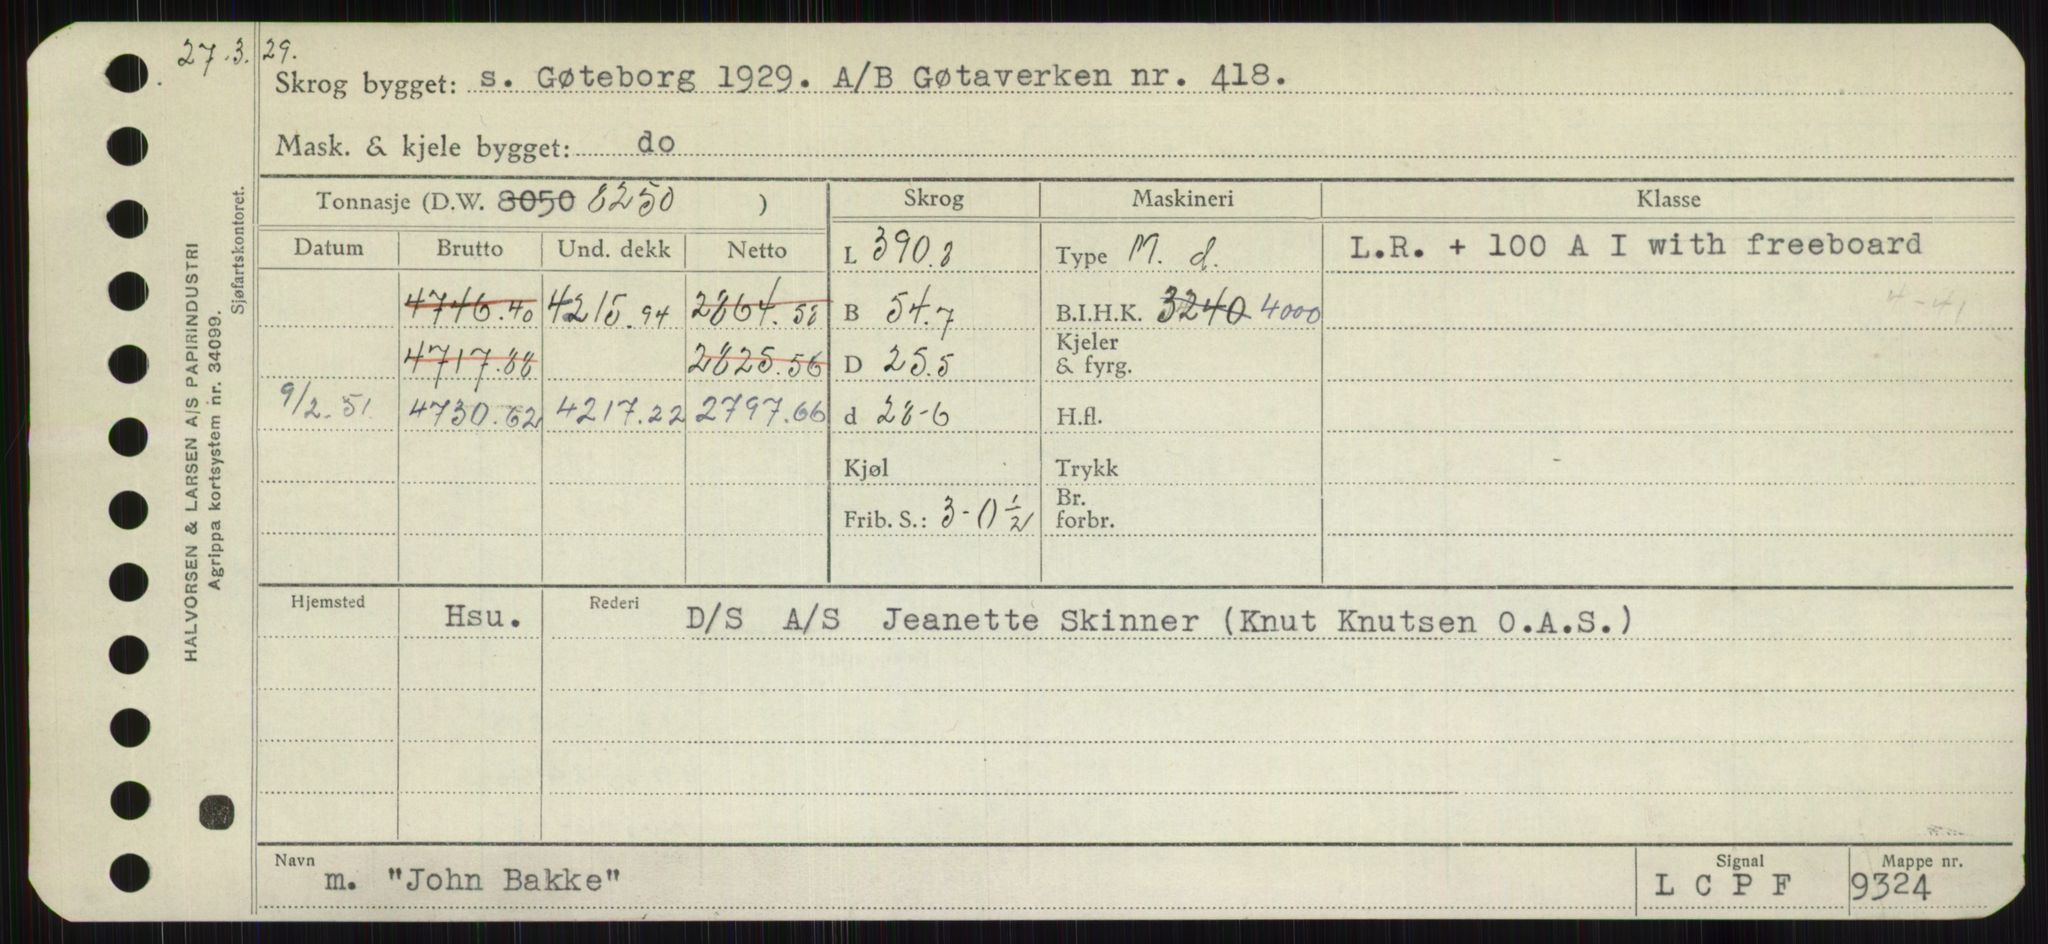 27.3.29.
Skrog bygget: s. Gøteborg 1929. A/B Gøtaverken nr. 418.
Mask. & kjele bygget: do
Tonnasje (D.W. 8050 8250 ) Skrog Maskineri Klasse
Datum Brutto Und. dekk Netto L 390.8 Type M. d. L.R. + 100 A I with freeboard
4746.40 4215.94 2864.58 B 54.7 B.I.H.K. 3240 4000 4-41
4717.88 2825.56 D 25.5 Kjeler & fyrg.
9/2.51. 4730.62 4217.22 2797.66 d 28-6 H.fl.
Kjøl Trykk
Frib. S.: 3-0 1/2 Br. forbr.
Hjemsted Hsu. Rederi D/S A/S Jeanette Skinner (Knut Knutsen O.A.S.)
Navn m. "John Bakke" Signal L C P F Mappe nr. 9324
HALVORSEN & LARSEN A/S PAPIRINDUSTRI
Agrippa kortsystem nr. 34099.
Sjøfartskontoret.